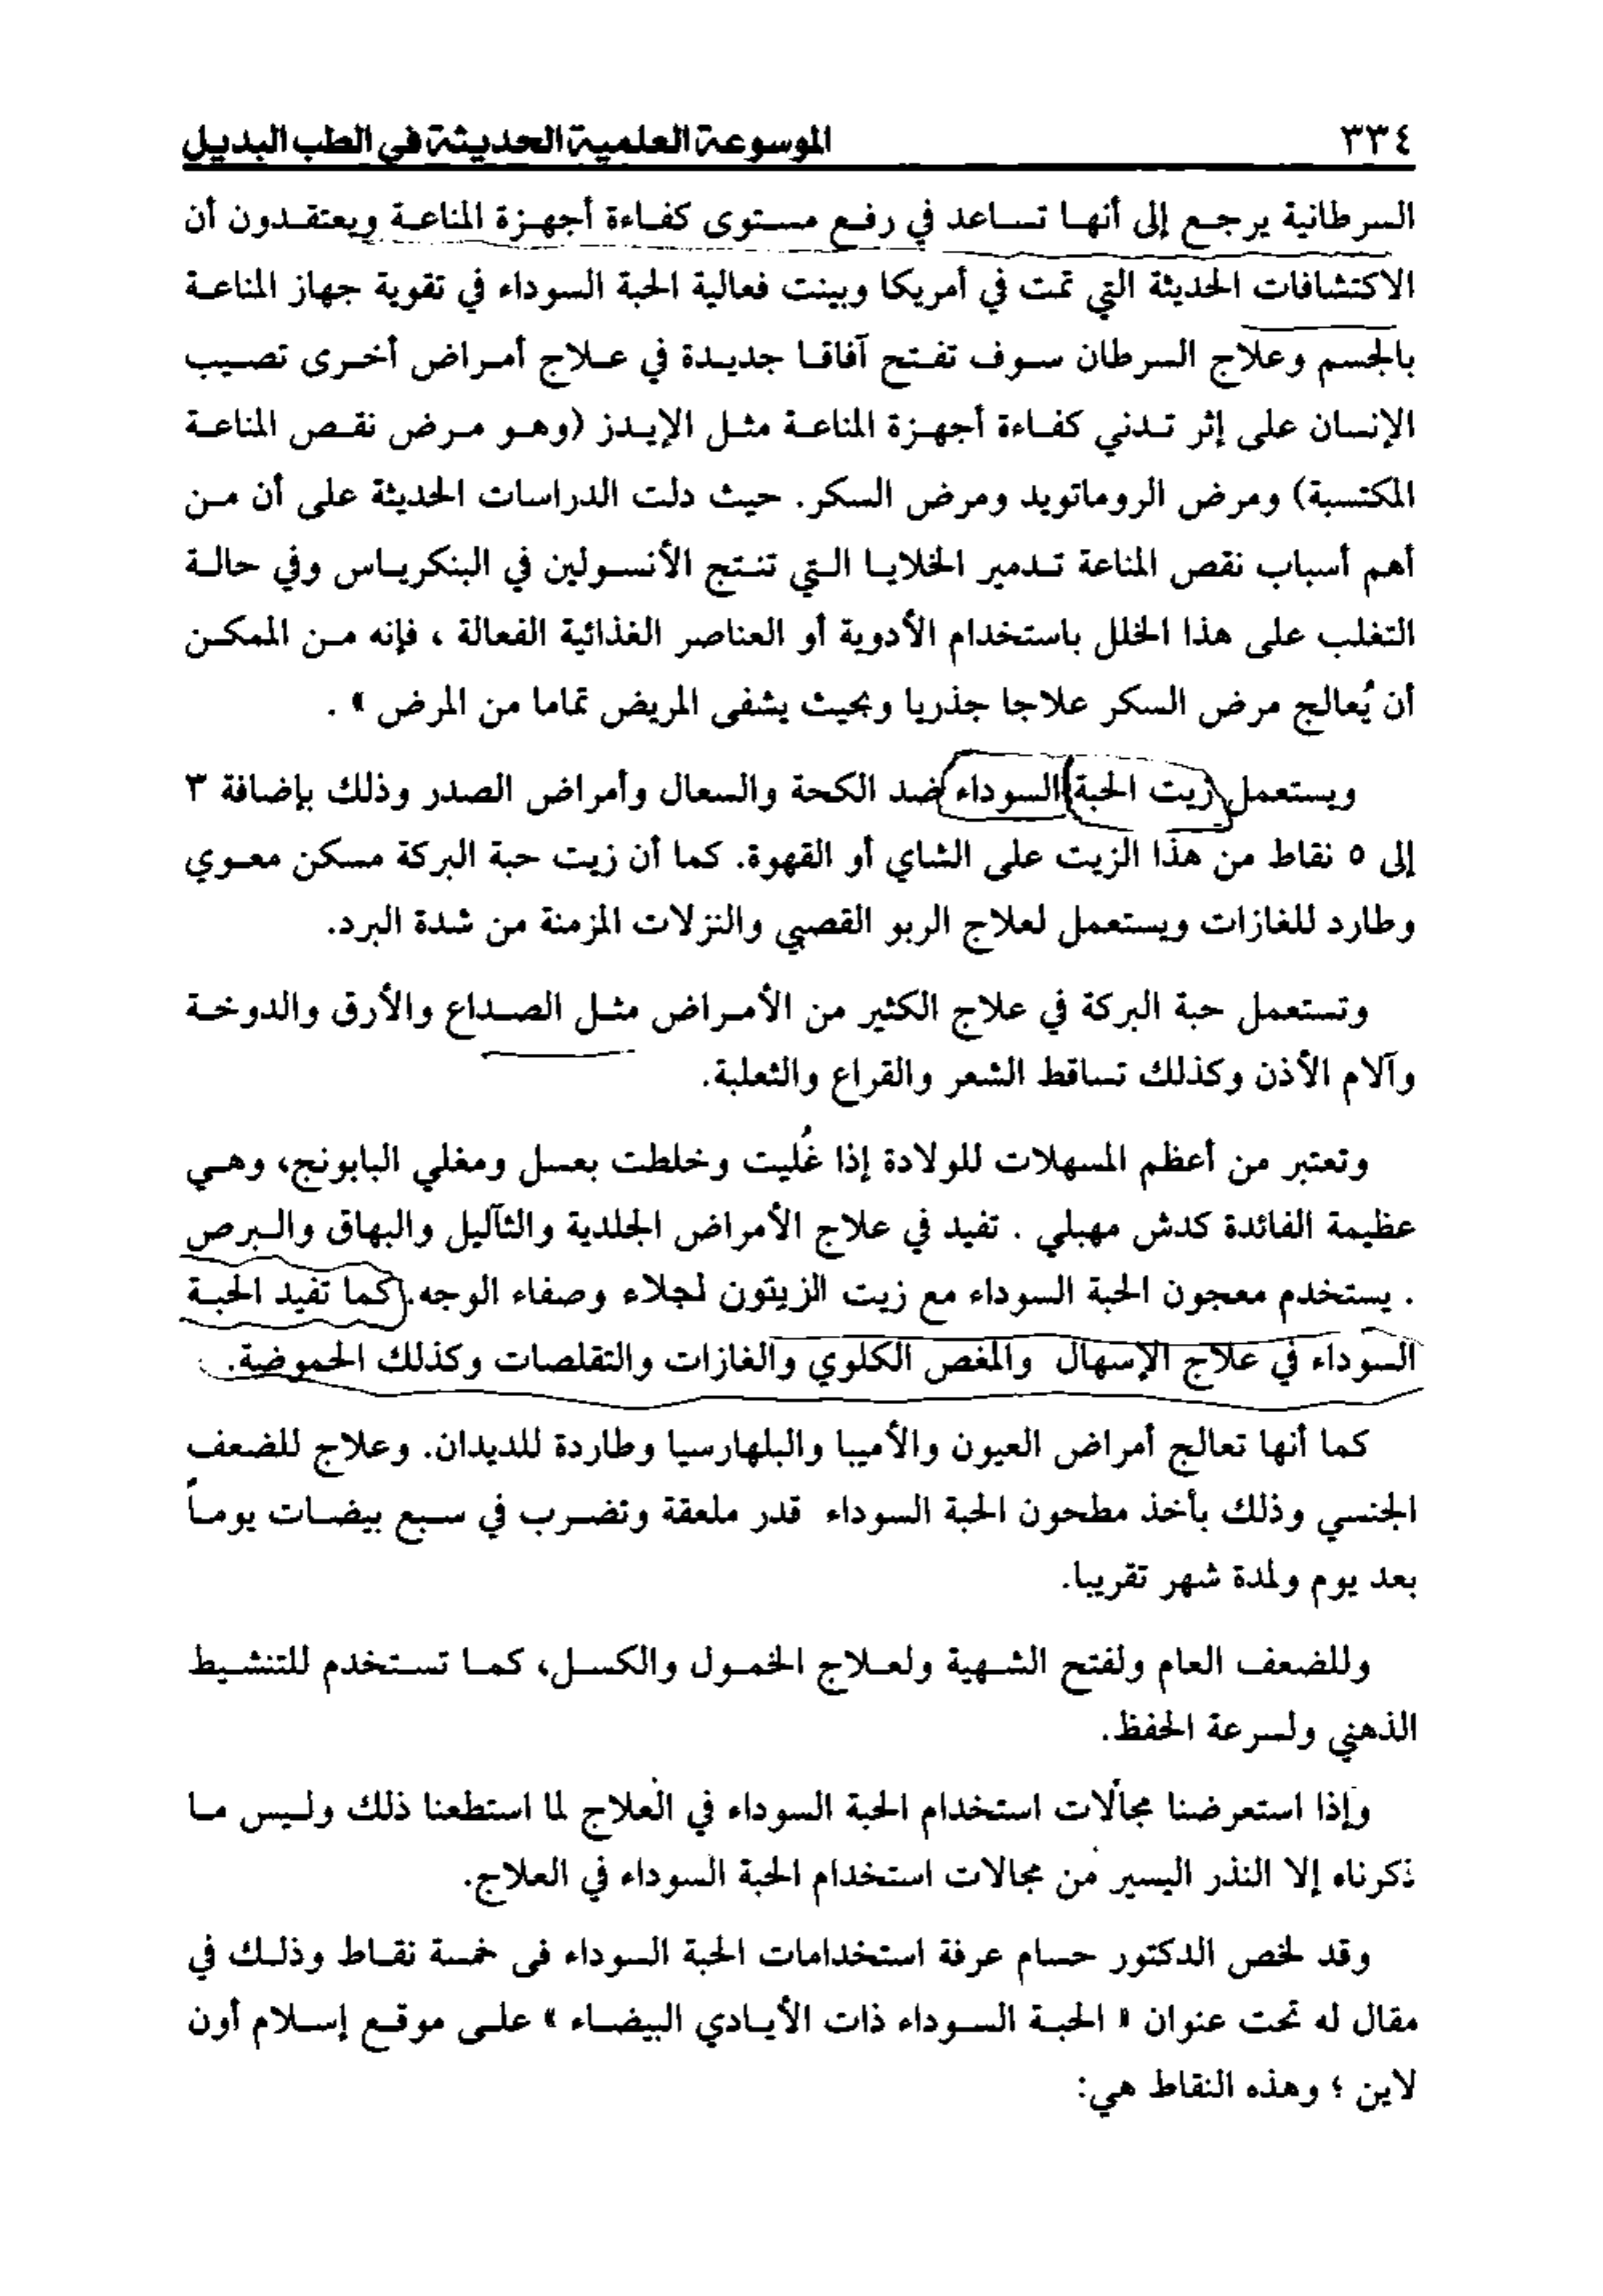 ٣٣٤
الموسوعة العلمية الحديثة في الطب البديل
السرطانية يرجع إلى أنها تساعد في رفع مستوى كفاءة أجهزة المناعة ويعتقدون أن
الاكتشافات الحديثة التي تمت في أمريكا وبينت فعالية الحبة السوداء في تقوية جهاز المناعة
بالجسم وعلاج السرطان سوف تفتح آفاقا جديدة في علاج أمراض أخرى تصيب
الإنسان على إثر تدني كفاءة أجهزة المناعة مثل الإيدز (وهو مرض نقص المناعة
المكتسبة) ومرض الروماتويد ومرض السكر. حيث دلت الدراسات الحديثة على أن من
أهم أسباب نقص المناعة تدمير الخلايا التي تنتج الأنسولين في البنكرياس وفي حالة
التغلب على هذا الخلل باستخدام الأدوية أو العناصر الغذائية الفعالة ، فإنه من الممكن
أن يُعالج مرض السكر علاجا جذريا وبحيث يشفى المريض تماما من المرض » .
ويستعمل زيت الحبة السوداء ضد الكحة والسعال وأمراض الصدر وذلك بإضافة ٣
إلى ٥ نقاط من هذا الزيت على الشاي أو القهوة. كما أن زيت حبة البركة مسكن معوي
وطارد للغازات ويستعمل لعلاج الربو القصبي والنزلات المزمنة من شدة البرد.
وتستعمل حبة البركة في علاج الكثير من الأمراض مثل الصداع والأرق والدوخة
وآلام الأذن وكذلك تساقط الشعر والقراع والثعلبة.
وتعتبر من أعظم المسهلات للولادة إذا غُليت وخلطت بعسل ومغلي البابونج، وهي
عظيمة الفائدة كدش مهبلي . تفيد في علاج الأمراض الجلدية والثآليل والبهاق والبرص
. يستخدم معجون الحبة السوداء مع زيت الزيتون لجلاء وصفاء الوجه. كما تفيد الحبة
السوداء في علاج الإسهال والمغص الكلوي والغازات والتقلصات وكذلك الحموضة.
كما أنها تعالج أمراض العيون والأميبا والبلهارسيا وطاردة للديدان. وعلاج للضعف
الجنسي وذلك بأخذ مطحون الحبة السوداء قدر ملعقة وتضرب في سبع بيضات يوماً
بعد يوم ولمدة شهر تقريبا.
وللضعف العام ولفتح الشهية ولعلاج الخمول والكسل، كما تستخدم للتنشيط
الذهني ولسرعة الحفظ.
وإذا استعرضنا مجالات استخدام الحبة السوداء في العلاج لما استطعنا ذلك وليس ما
ذكرناه إلا النذر اليسير من مجالات استخدام الحبة السوداء في العلاج.
وقد لخص الدكتور حسام عرفة استخدامات الحبة السوداء فى خمسة نقاط وذلك في
مقال له تحت عنوان « الحبة السوداء ذات الأيادي البيضاء » على موقع إسلام أون
لاين ؛ وهذه النقاط هي: